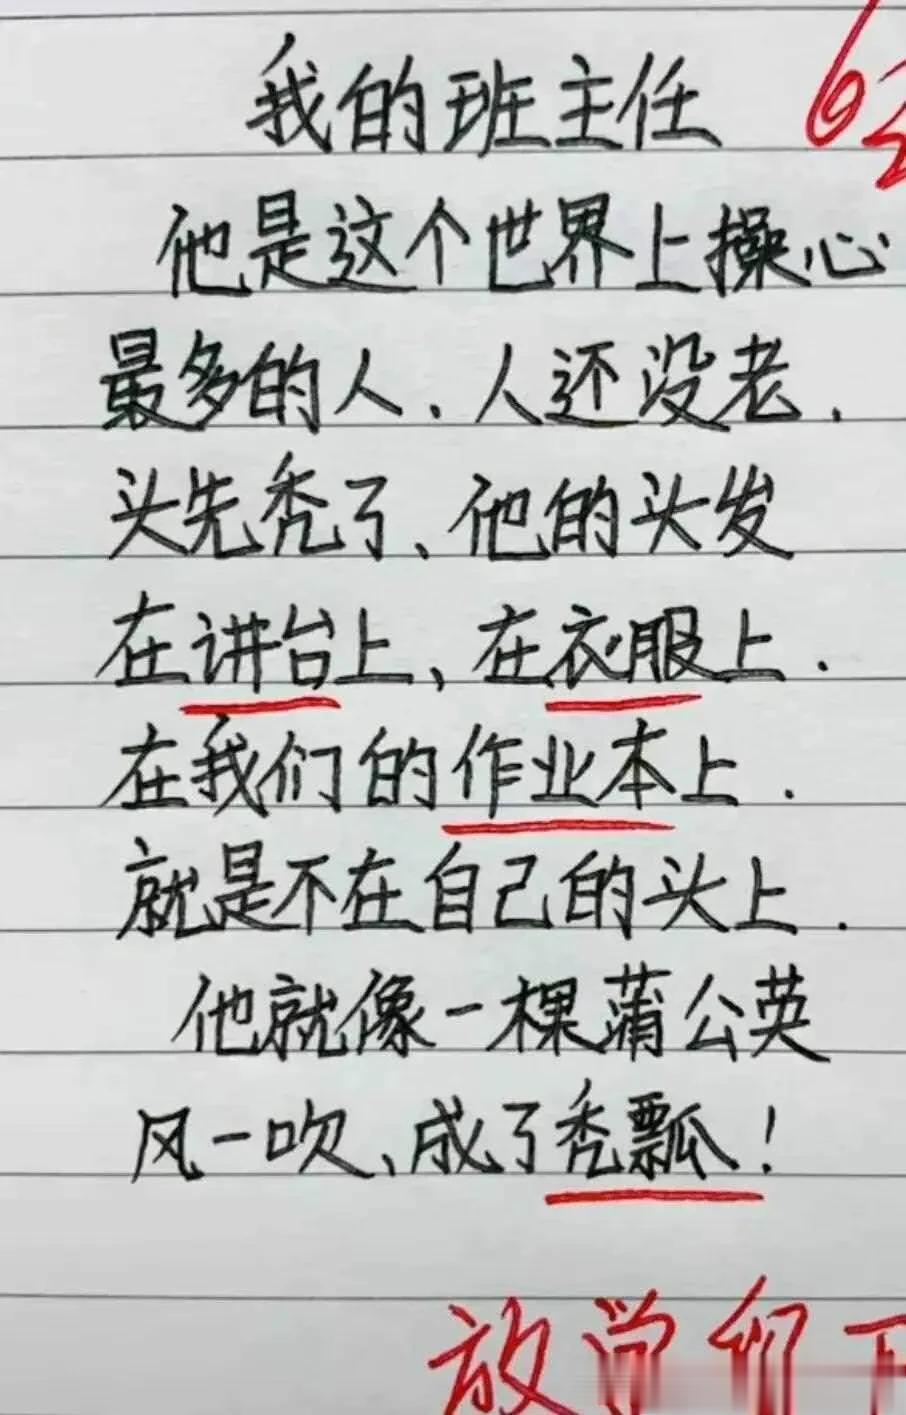 我的班主任
他是这个世界上操心
最多的人.人还没老.
头先秃了、他的头发
在讲台上、在衣服上.
在我们的作业本上.
就是不在自己的头上.
他就像一棵蒲公英
风一吹、成了秃瓢!
放学